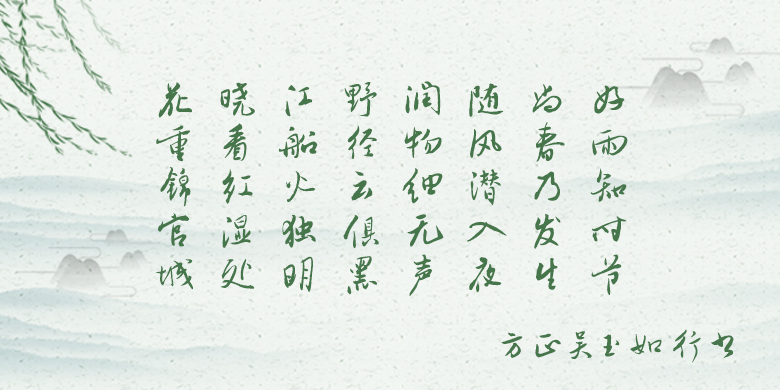 好雨知时节
当春乃发生
随风潜入夜
润物细无声
野径云俱黑
江船火独明
晓看红湿处
花重锦官城
方正吴玉如行书